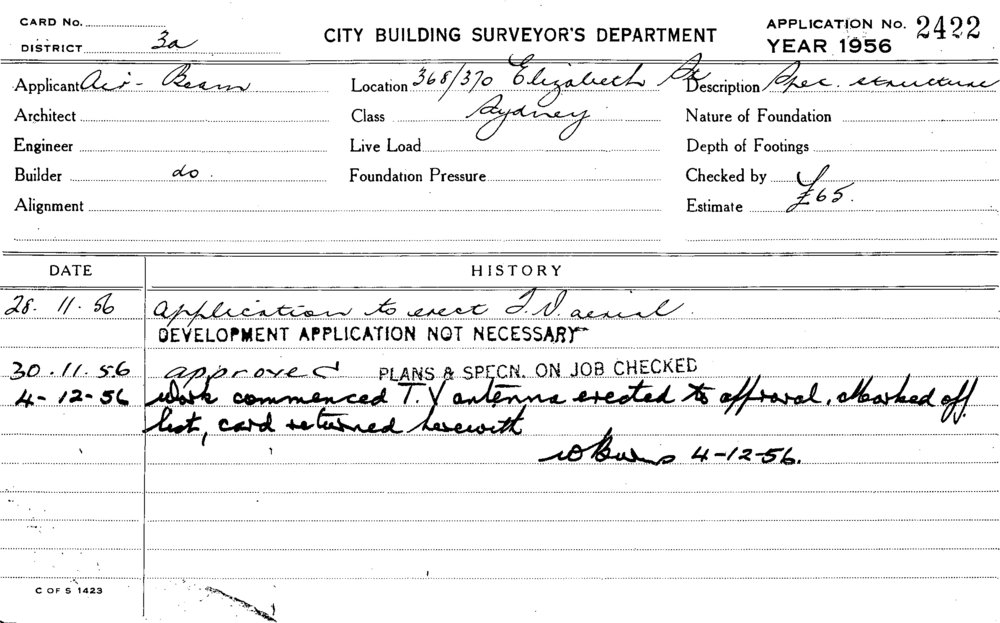 CARD No.
DISTRICT 3a
CITY BUILDING SURVEYOR'S DEPARTMENT
APPLICATION No. 2422
YEAR 1956
Applicant Air-Beam
Location 368/370 Elizabeth St
Description Spec. structure
Architect
Class Sydney
Nature of Foundation
Engineer
Live Load
Depth of Footings
Builder do.
Foundation Pressure
Checked by
Alignment
Estimate £65.
DATE HISTORY
28. 11. 56 Application to erect T.V. aerial.
DEVELOPMENT APPLICATION NOT NECESSARY
30.11.56 approved PLANS & SPECN. ON JOB CHECKED
4-12-56 Work commenced T.V antenna erected to approval. Marked off
list, card returned herewith
4-12-56.
C OF S 1423